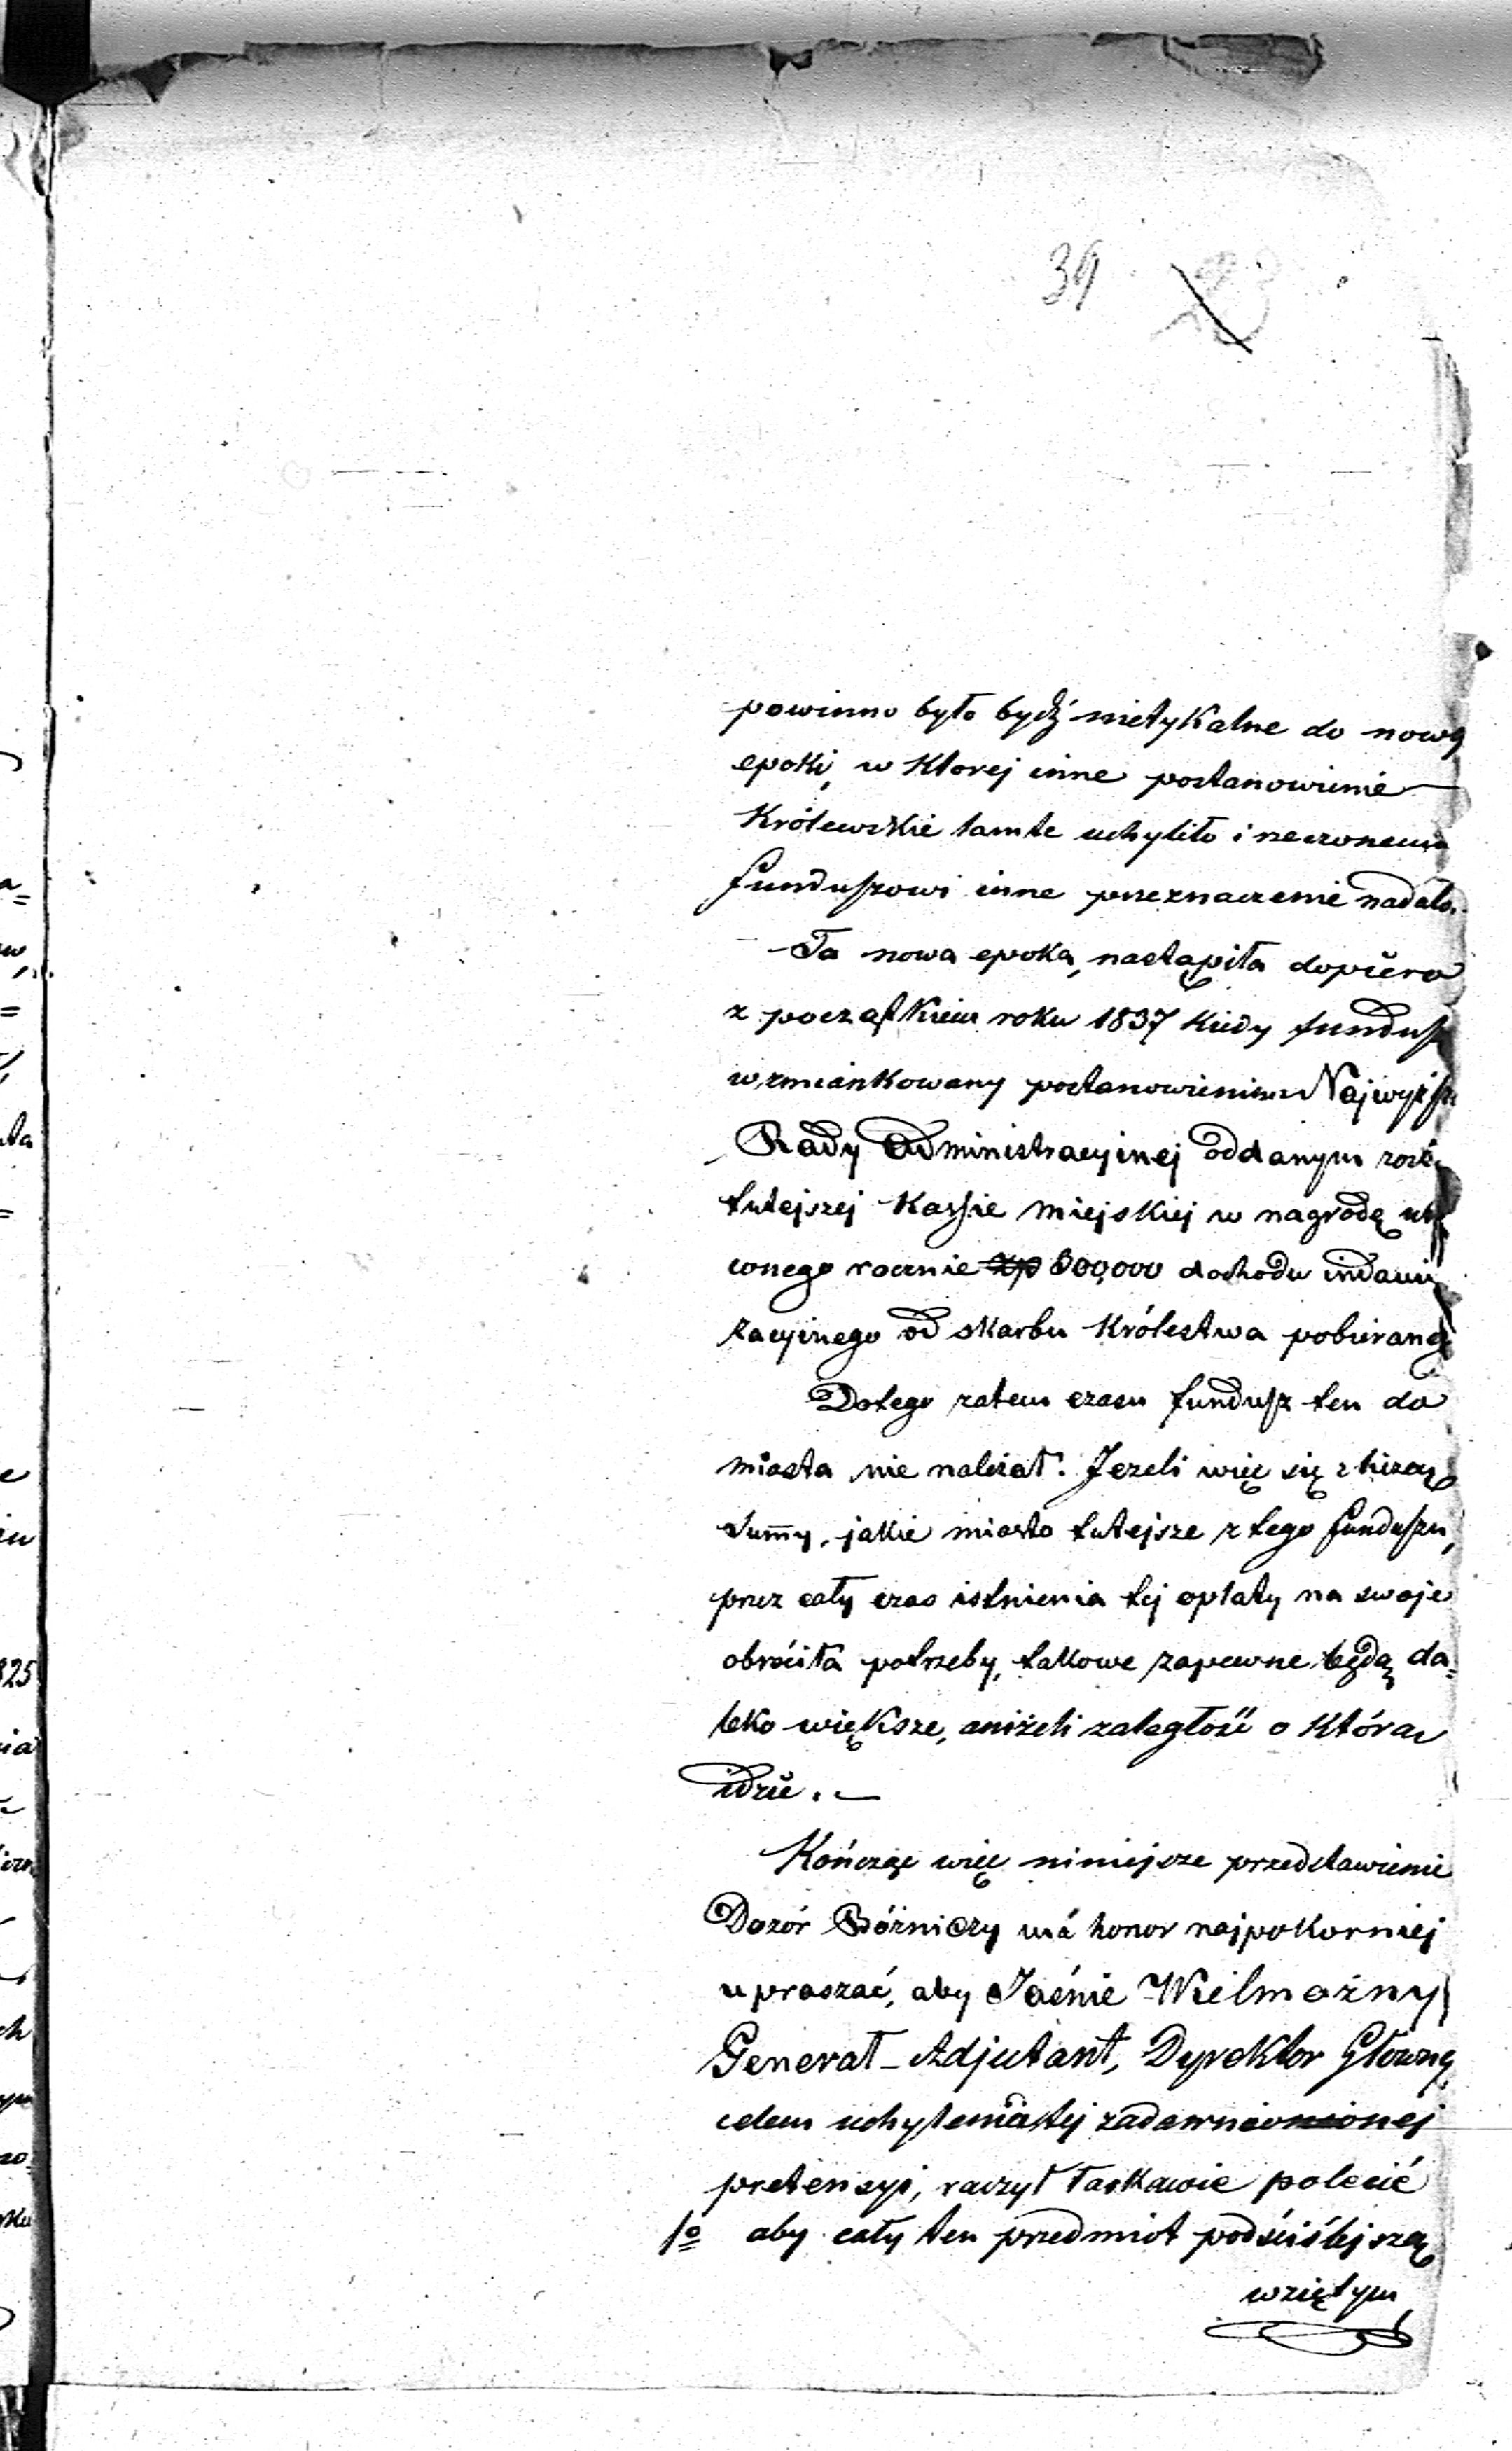 39
powinno było bydź nietykalne do nowej
epoki, w ktorej inne postanowienie
Królewskie tamte uchyliło i rzeczonemu
funduszowi inne przeznaczenie nadało.
Ta nowa epoka, nastąpiła dopiero
z początkiem roku 1837 kiedy fundusz
wzmiankowany postanowieniem Najwyższ
Rady Administracyinej oddanym zost
tutejszej Kassie Miejskiej w nagrodę
conego rocznie zp 300,000 dochodu indemni
zacyinego od skarbu Królestwa pobieraneg
Dotego zatem czasu fundusz ten do
miasta nie należał. Jezeli więc się zliczą
Summy, jakie miasto tutejsze z tego funduszu,
przez cały czas istnienia tej opłaty na swoje
obróciła potrzeby, takowe zapewne będą da=
leko większe, aniżeli zaległość o która
idzie. —
Kończąc więc niniejsze przedstawienie
Dozór Bóżniczy ma honor najpokorniej
upraszać, aby Jaśnie Wielmożny
Generał-Adjutant, Dyrektor Główny
celem uchylenia tej zadawnionej
pretensyi, raczył łaskawie polecić
1o aby cały ten przedmiot pod ściślejszą
wziętym